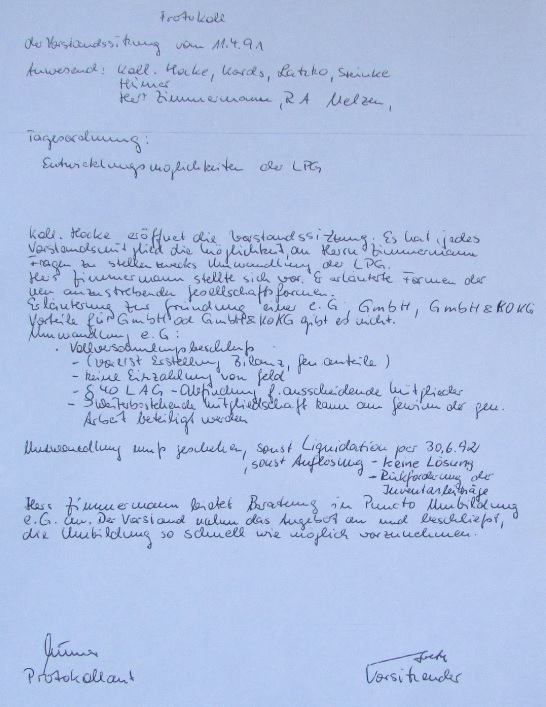 Protokoll
der Vorstandssitzung vom 11.4.91
Anwesend: Koll. Hacke, Kords, Latzko, Steinke
Hümer
Herr Zimmermann, RA Melzen,
Tagesordnung:
Entwicklungsmöglichkeiten der LPG
Koll. Hacke eröffnet die Vorstandssitzung. Es hat jedes
Vorstandsmitglied die Möglichkeit an Herrn Zimmermann
Fragen zu stellen zwecks Umwandlung der LPG.
Herr Zimmermann stellte sich vor. Er erläuterte Formen der
neu anzustrebenden Gesellschaftsformen.
Erläuterung zur Gründung einer e.G. GmbH, GmbH & KOKG
Vorteile für GmbH od GmbH & KOKG gibt es nicht.
Umwandlung e.G:
. Vollversammlungsbeschluß
- (vorerst Erstellung Bilanz, Gen.anteile)
- keine Einzahlung von Geld
- § 40 LAG - Abfindung f. ausscheidende Mitglieder
- Weiterbestehende Mitgliedschaft kann am Gewinn der gen.
Arbeit beteiligt werden
Umwandlung muß geschehen, sonst Liquidation per 30.6.92/
, sonst Auflösung - keine Lösung
- Rückforderung der
Inventarbeiträge
Herr Zimmermann bietet Beratung in Puncto Umbildung
e.G. an. Der Vorstand nahm das Angebot an und beschließt,
die Umbildung so schnell wie möglich vorzunehmen.
Protokollant
Vorsitzender